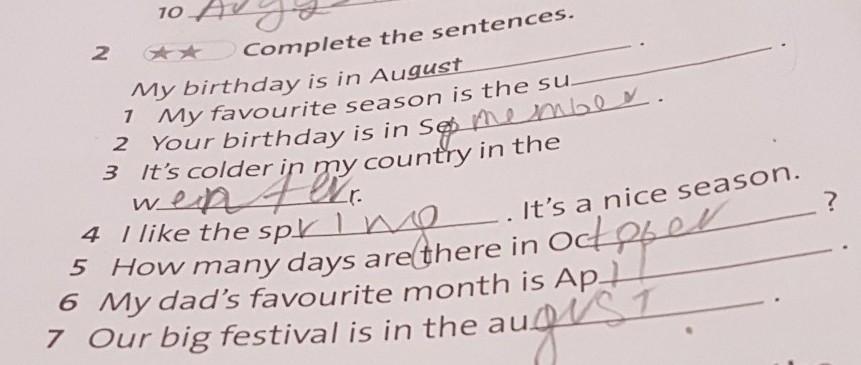 10 Augu
2 ★★ Complete the sentences.
My birthday is in August .
1 My favourite season is the su .
2 Your birthday is in Sepmember .
3 It's colder in my country in the
wenter r.
4 I like the spring . It's a nice season.
5 How many days are there in Octopper ?
6 My dad's favourite month is Ap l .
7 Our big festival is in the august .